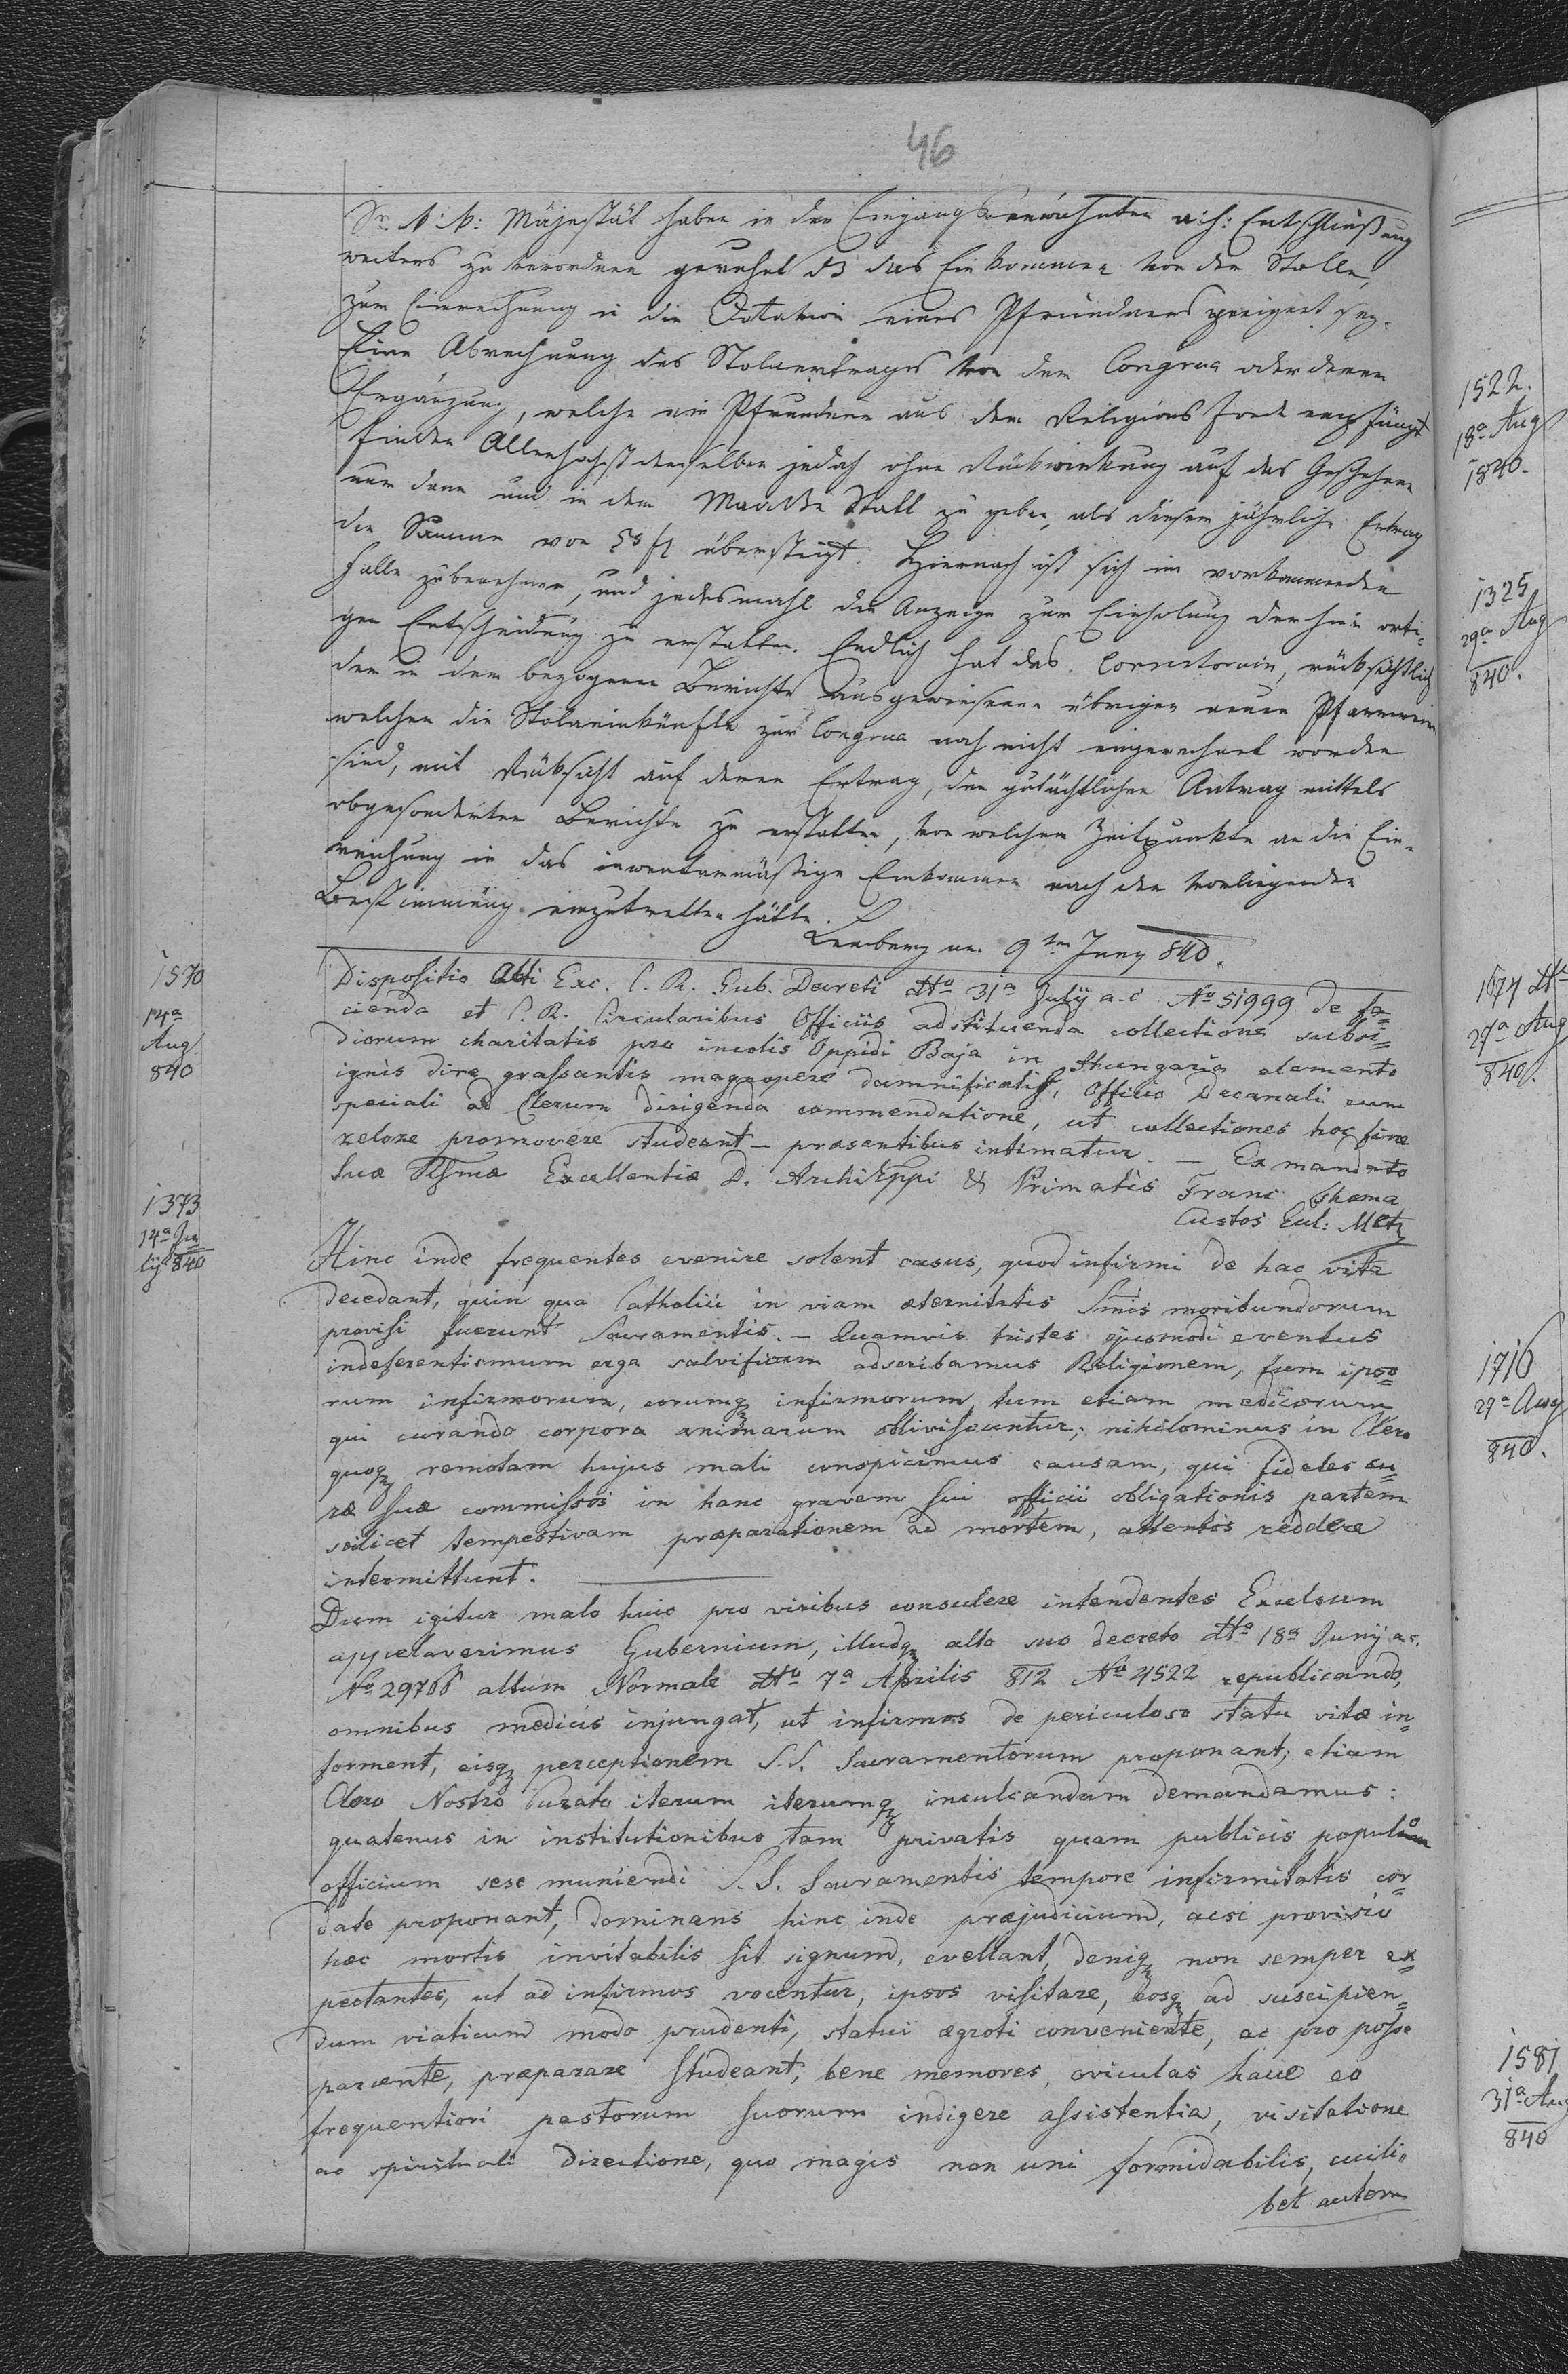 46
Sr. k: k: Majestät haben in der Eingangs erwähnten a: h: Entschließung
weiters zu verordnen geruhet dß das Einkommen von der Stolle,
zur Einrechnung in die Dotation eines Pfründners geeignet sey.
Eine Abrechnung des Stolaertrages von der Congrua oder deren
Ergänzung, welche ein Pfründner aus dem Religions Fonde empfängt
finden Allerhöchst dieselben jedoch ohne Rückwirkung auf das Geschehene
nur dann und in dem Maaße Statt zu geben, als dieser jährliche Ertrag
die Summe von 50 fl übersteigt. Hiernach ist sich im vorkommenden
Falle zu benehmen, und jedesmahl die Anzeige zur Einholung der hier orti-
gen Entscheidung zu erstatten. Endlich hat das Consistorium, rücksichtlich
der in dem bezogenen Berichte ausgewiesenen übrigen neuen Pfarreien
welchen die Stolaeinkünfte zur Congrua noch nicht eingerechnet worden
sind, mit Rücksicht auf deren Ertrag, den gutächtlichen Antrag mittels
abgesonderten Berichte zu erstatten, von welchem Zeitpunkte an die Ein-
rechung in das inventarmäßige Einkommen nach der vorliegenden
Bestimmung einzutretten hätte.
Lemberg am 9ten Juny 840.
1570
14a
Aug
840
Dispositio Alti Exc. C. R. Gub. Decreti dtto 31a Julÿ a. c. No 51999 de fa=
cienda et C. R. Circularibus Officiis adstituenda collectione subsi=
diorum charitatis pro incolis Oppidi Baja in Hungaria elemento
ignis dire grassantis magnopere damnificatis, Officio Decanali cum
speciali ad Clerum dirigenda commendatione, ut collectiones hoc fine
zelose promovere studeant – præsentibus intimatur. – Ex mandato
Suæ Excellentiæ D. ArchiEppi & Primatis Franc
Custos Eccl: Metr
1373
14a Ju
lÿ 840
Hinc inde frequentes evenire solent casus, quod infirmi de hac vita
decedant, quin qua Catholici in viam æternitatis Smis moribundorum
provisi fuerunt Sacramentis. – Quamvis tristes ejusmodi eventus
indeferentismum erga salvificam adscribamus Religionem, tum ipso=
rum infirmorum, eorumq infirmorum tum etiam medicorum
qui curando corpora animarum obliviscuntur; nihilominus in Clero
quoq remotam hujus mali conspicimus causam, qui fideles cu=
ræ suæ commissos in hanc gravem sui officii obligationis partem
scilicet tempestivam præparationem ad mortem, attentos reddere
intermittunt.
Dum igitur malo huic pro viribus consulere intendentes Excelsum
appelaverimus Gubernium, illudq alto suo decreto dtto 18a Junÿ a. c.
No 29706 altum Normale dtto 7a Aprilis 812 No 4522 republicando,
omnibus medicis injungat, ut infirmos de periculoso statu vitæ in=
forment, eisq perceptionem S.S. Sacramentorum proponant; etiam
Clero Nostro Curato iterum iterumq inculcandum demandamus:
quatenus in institutionibus tam privatis quam publicis populum
officium sese muniendi S. S. Sacramentis tempore infirmitatis cor=
date proponant, dominans hinc inde præjudicium, acsi provisio
hæc mortis invitabilis sit signum, evellant, deniq non semper ex=
pectantes, ut ad infirmos vocentur, ipsos visitare, eosq ad suscipien=
dum viaticum modo prudenti, statui ægroti conveniente, ac pro posse
parcente, præparare studeant, bene memores, oviculas hasce eo
frequentiori pastorum suorum indigere assistentia, visitatione
ac spirituali directione, quo magis non uni formidabilis, cuili=
bet autem
1522.
18a Aug
1840.
1325
29a Aug
840.
1674 dtto
27a Aug
840.
1716
27a Aug
840.
1581
31a Aug
840